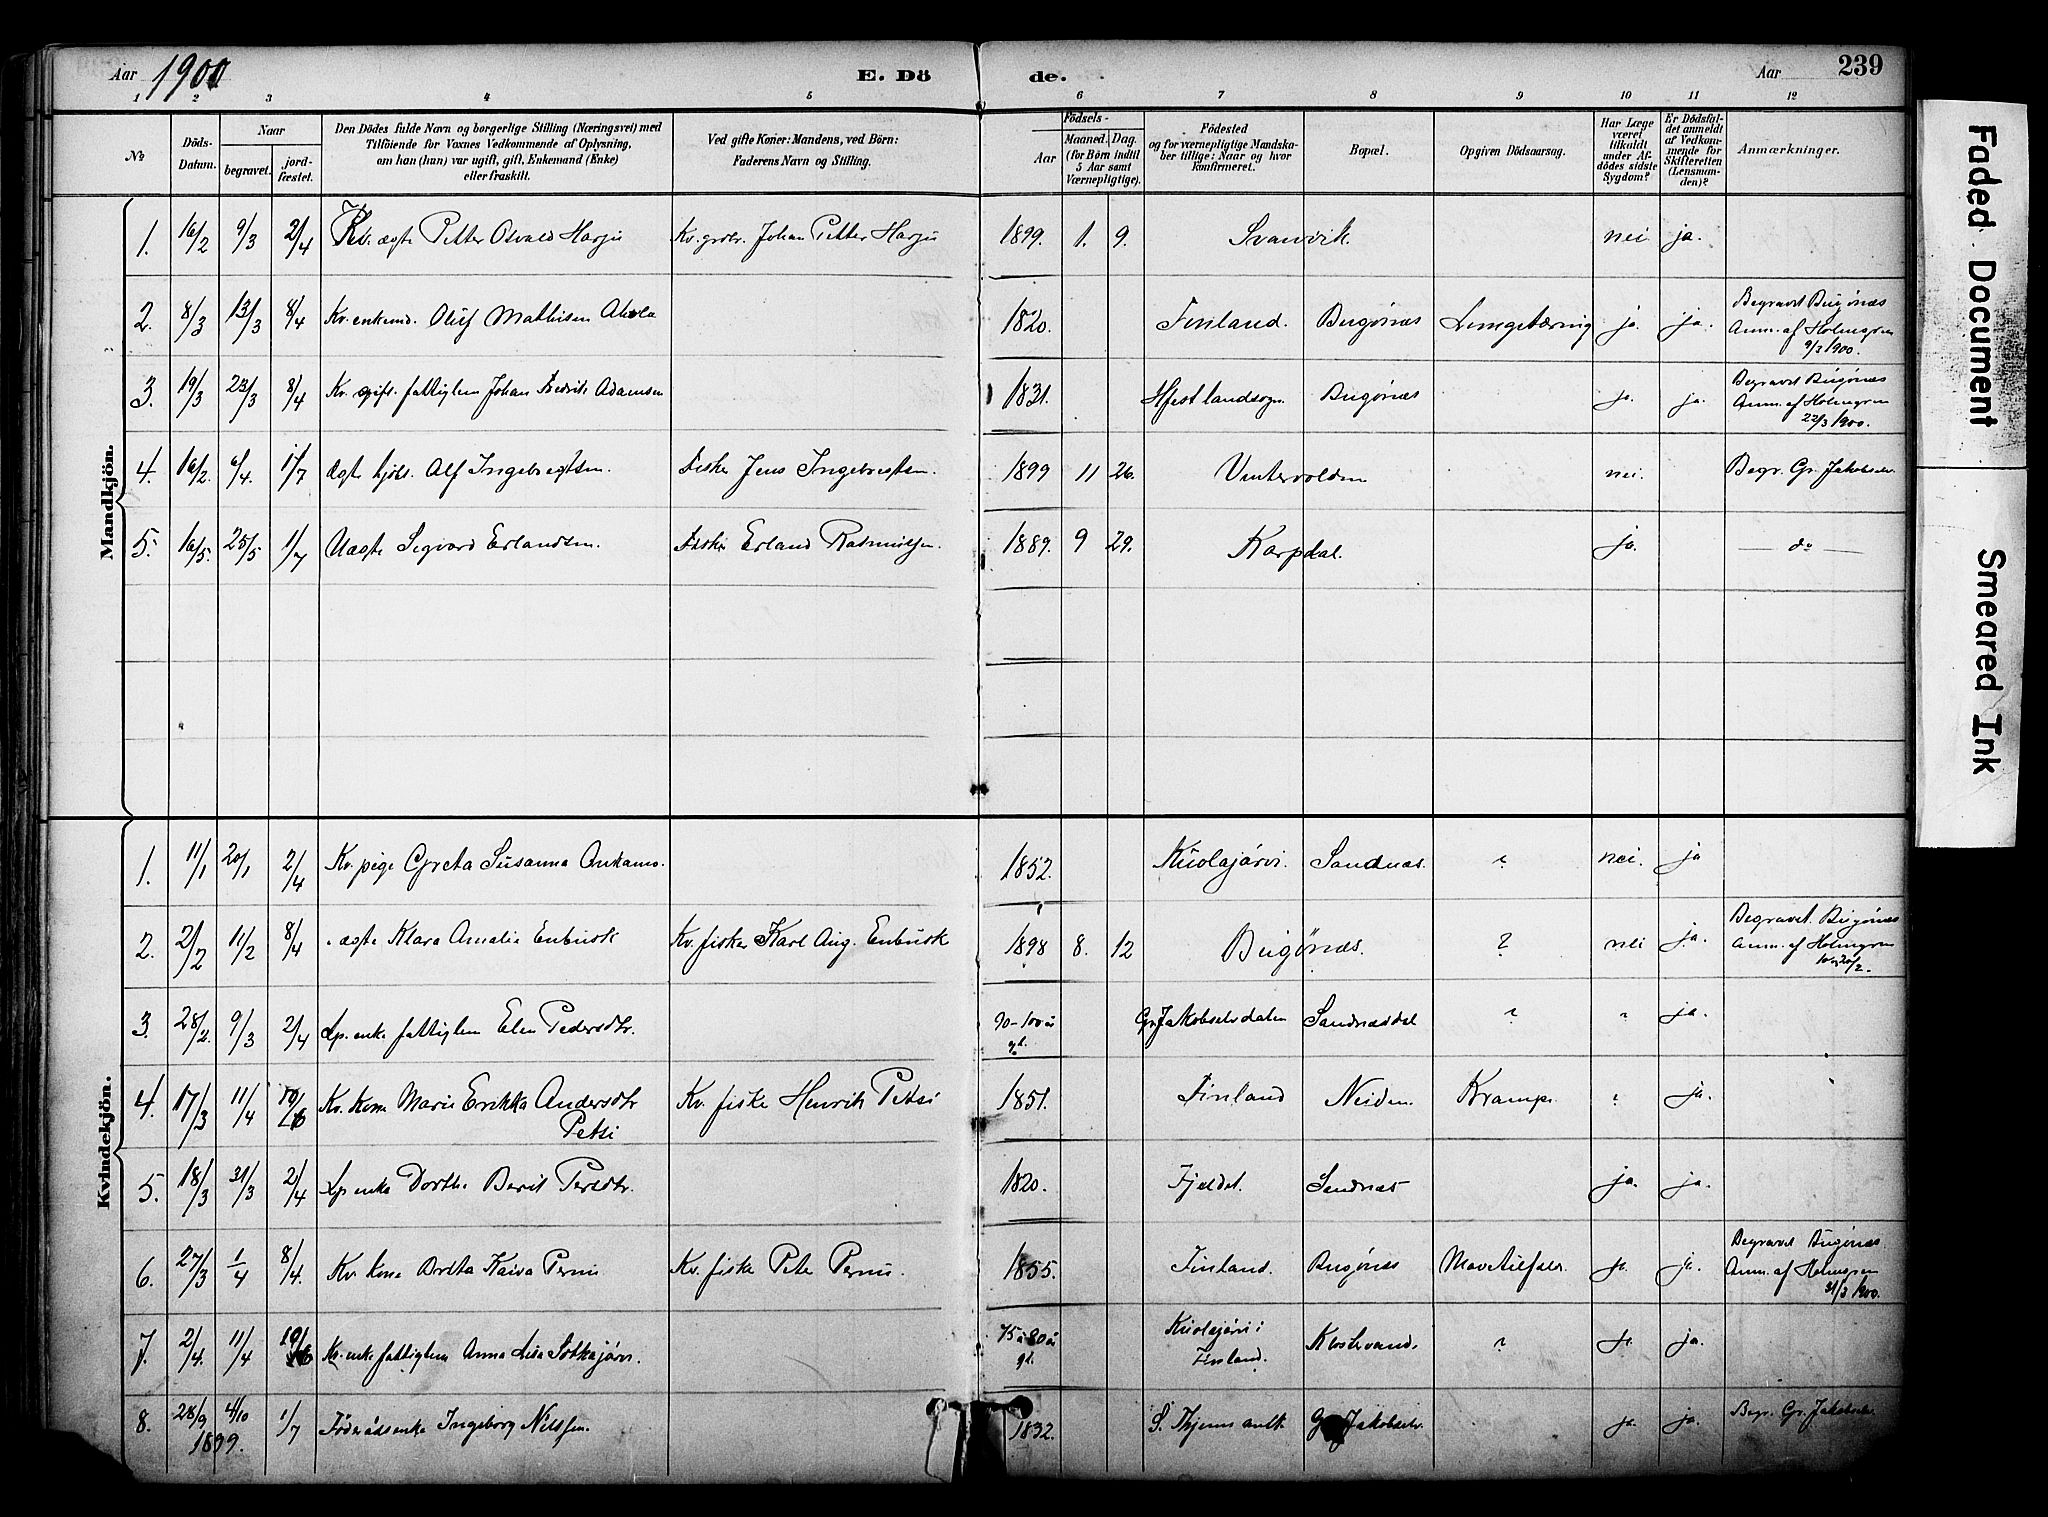 Aar 1900 E. Döde. Aar 239
1 2 3 4 5 6 7 8 9 10 11 12
No
Döds-Datum.
Naar
begravet.
jord-fæstet.
Den Dödes fulde Navn og borgerlige Stilling (Næringsvei) med
Tilföiende for Voxnes Vedkommende af Oplysning,
om han (hun) var ugift, gift, Enkemand (Enke)
eller fraskilt.
Ved gifte Koner: Mandens, ved Börn:
Faderens Navn og Stilling.
Födsels-
Aar
Maaned.
Dag.
(for Börn indtil
5 Aar samt
Værnepligtige).
Födested
og for værnepligtige Mandska-
ber tillige: Naar og hvor
konfirmeret.
Bopæl.
Opgiven Dödsaarsag.
Har Læge
været
tilkaldt
under Af-
dödes sidste
Sygdom?
Er Dödsfal-
det anmeldt
af Vedkom-
mende for
Skifteretten
(Lensman-
den)?
Anmærkninger.
Mandkjön.
1. 16/2 9/3 2/4 Kv. ægte Petter Osvald Harju Kv. grdbr. Johan Petter Harju 1899. 1. 9. Svanvik. nei ja.
2. 8/3 13/3 8/4 Kv. enkemd. Oluf Mathisen Ahola 1820. Finland. Bugönæs Lungetæring ja. ja. Begravet Bugönæs
Anm. af Holmgren
9/3 1900.
3. 19/3 23/3 8/4 Kv. gift. fattiglem Johan Fredrik Adamsen 1831. landsogn. Bugönæs ja. ja. Begravet Bugönæs
Anm. af Holmgren
22/3 1900.
4. 16/2. 6/4. 1/7 Ægte Alf Ingebregtsen. Fisker Jens Ingebregtsen. 1899 11 26. Vintervolden nei. Begr. Gr. Jakobselv.
5. 16/5. 25/5 1/7 Uægte Sigvard Erlandsen. Fisker Erland Rasmussen. 1889. 9 29. Karpdal. ja. — do —
Kvindekjön.
1. 11/1 20/1 2/4 Kv. pige Greta Susanna Ankamo. 1852. Kuolajärvi. Sandnæs. ? nei. ja
2. 2/2 11/2 8/4 ægte Klara Amalie Enbusk Kv. fisker Karl Aug. Enbusk 1898 8. 12 Bugönæs. ? nei ja. Begravet Bugönæs
Anm. af Holmgren
3. 28/2. 9/3 2/4 Lp. enke fattiglem Elen Pedersdtr. 90-100 år
gl. Gr. Jakobselvdalen Sandnæsdal ? " ja.
4. 17/3 11/4 10/6 Kv. Kone Marie Erikka Andersdtr
Petsi Kv. fisker Henrik Petsi 1851. Finland Neiden Krampe ? ja.
5. 18/3 31/3 2/4 Lp. enke Dorthe Berit Persdtr. 1820. Fjeldet. Sandnæs ja. ja.
6. 27/3 1/4 8/4. Kv. Kone Brita Kaisa Pernu Kv. fisker Peter Pernu. 1855. Finland. Bugönæs ja. ja. Begravet Bugönæs
Anm. af Holmgren
31/3 1900.
7. 2/4. 11/4 10/6 Kv. enke fattiglem Anna Lisa Sotkajärvi. 75 à 80 år
gl. Kuolajärvi i
Finland. Klostervand. ? ja. ja.
8. 28/9
1899. 4/10 1/7 Föderådsenke Ingeborg Nilssen. 1832. Gr. Jakobselv. ja. ja. Begr. Gr. Jakobselv.
Faded Document
Smeared Ink